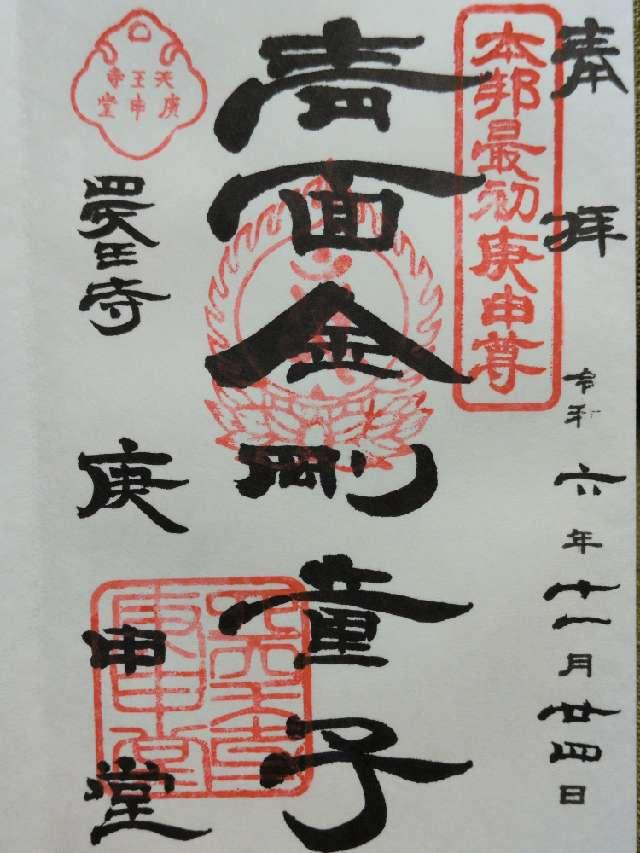 奉拝 令和六年十一月廿四日
本邦最初庚申尊
青面金剛童子
四天王寺 庚申堂
天王寺
庚申堂
四天王寺
庚申堂